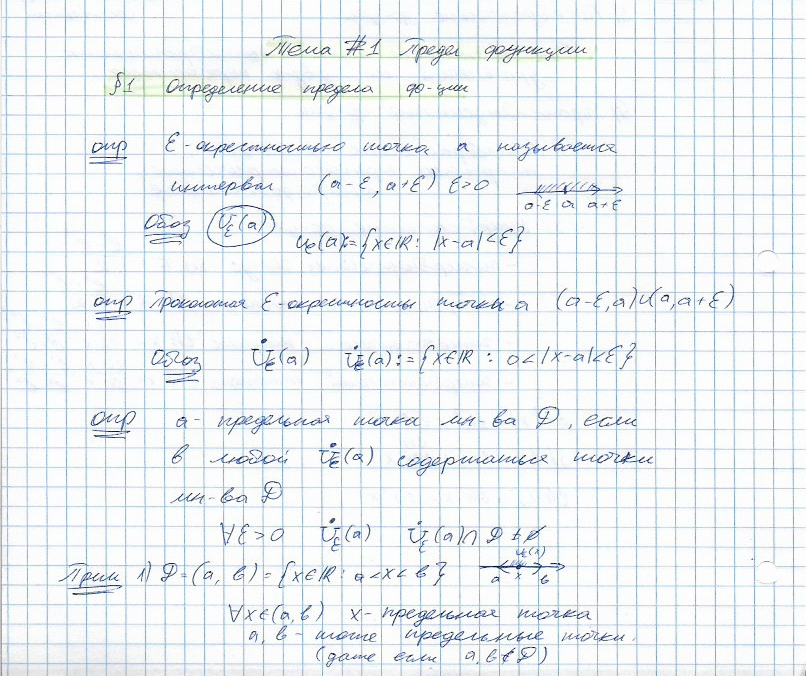 Тема #1 Предел функции
§1 Определение предела ф-ции
опр ε-окрестностью точка a называется
интервал (a-ε, a+ε) ε>0
a-ε a a+ε
Обоз U_ε(a)
U_ε(a):={x∈ℝ: |x-a|<ε}
опр Проколотая ε-окрестность точки a (a-ε,a)∪(a,a+ε)
Обоз U̇_ε(a) U̇_ε(a):={x∈ℝ: 0<|x-a|<ε}
опр a- предельная точка мн-ва D, если
в любой U̇_ε(a) содержаться точки
мн-ва D
∀ε>0 U̇_ε(a) U̇_ε(a)∩D≠∅
Прим 1) D=(a, b)={x∈ℝ: a<x<b}
U_ε(x)
a x b
∀x∈(a,b) x- предельная точка
a, b- тоже предельные точки.
(даже если a,b∉D)